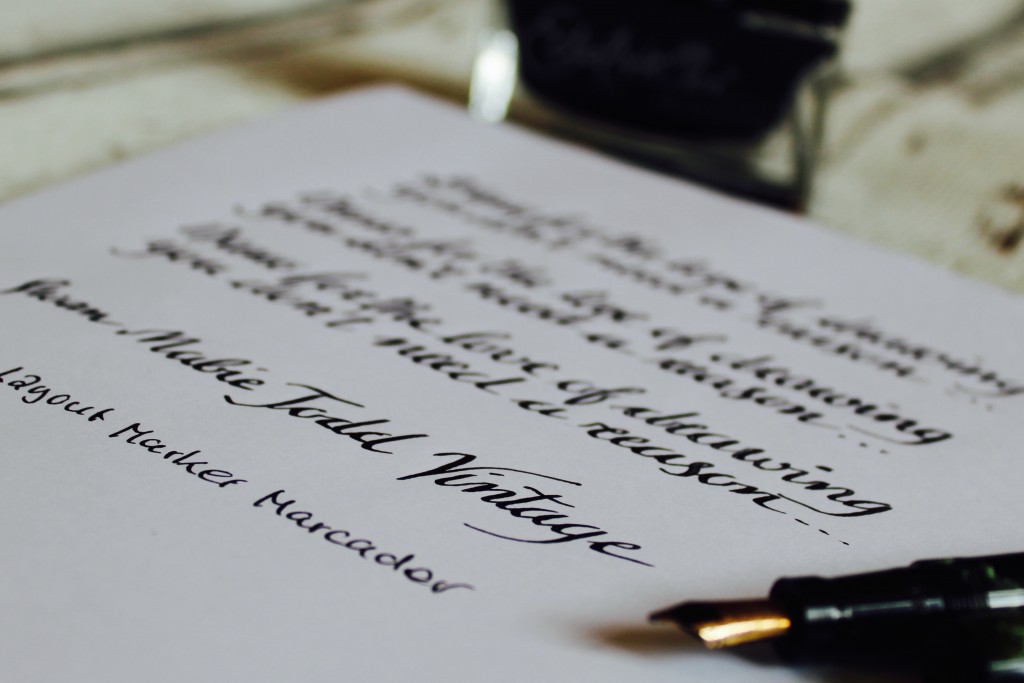 for the love of drawing
you don't need a reason...
Draw for the love of drawing
you don't need a reason...
Draw for the love of drawing
you don't need a reason...
Swan Mabie Todd Vintage
Layout Marker Marcador